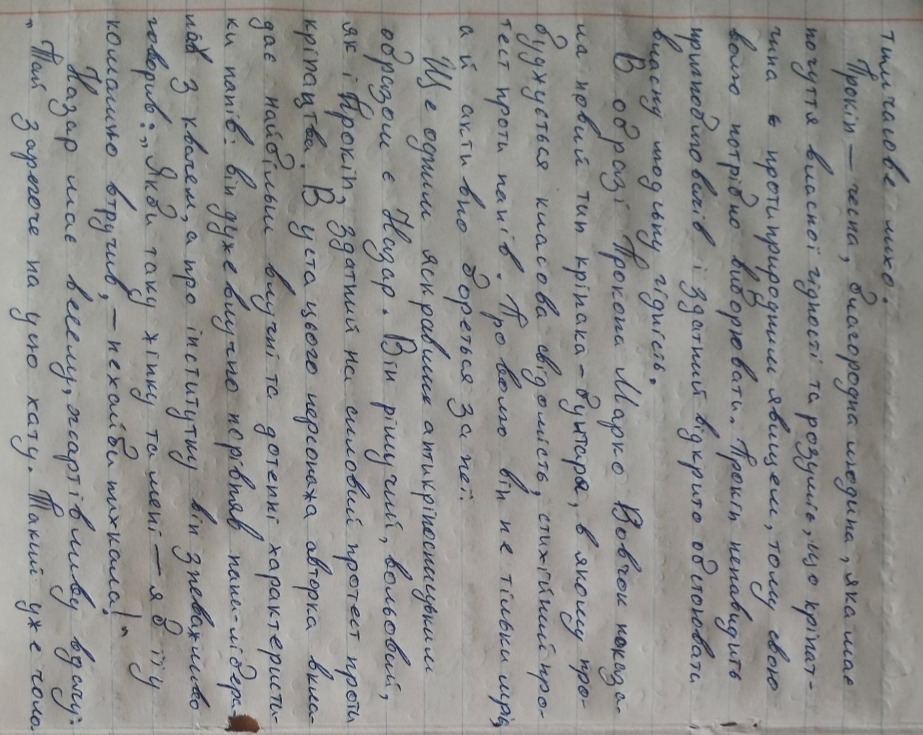 тимчасове лихо.
Прокіп — чесна, благородна людина, яка має
почуття власної гідності та розуміє, що кріпат-
чина є протиприродним явищем, тому свою
волю потрібно виборювати. Прокіп ненавидить
гнобителів і здатний відкрито обстоювати
власну людську гідність.
В образі Прокопа Марко Вовчок показа-
ла новий тип кріпака-бунтаря, в якому про-
буджується класова свідомість, стихійний про-
тест проти панів. Про волю він не тільки мріє,
а й активно бореться за неї.
Ще одним яскравим антикріпосницьким
образом є Назар. Він рішучий, вольовий,
як і Прокіп, здатний на силовий протест проти
кріпацтва. В уста цього персонажа авторка вкла-
дає найбільш влучні та дотепні характеристи-
ки панів: він дуже влучно порівняв пана-лібера-
ла з квачем, а про інститутку він зневажливо
говорив: „Якби таку жінку та мені — я б її у
комашню втручив, — нехай би пихкала!"
Назар має веселу, жартівливу вдачу:
„Той зарегоче на усю хату. Такий уже чоло